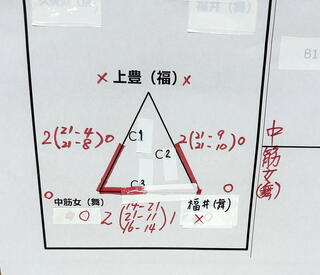 福井（舞）
B1
× 上豊（福） ×
2(21-4 21-8)0
C1
C2
2(21-9 21-10)0
C3
○
○
中筋女（舞）
○
2(14-21 21-11 16-14)1
福井（舞）
×
中筋女（舞）